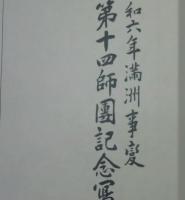 和六年滿洲事變
第十四師團記念寫